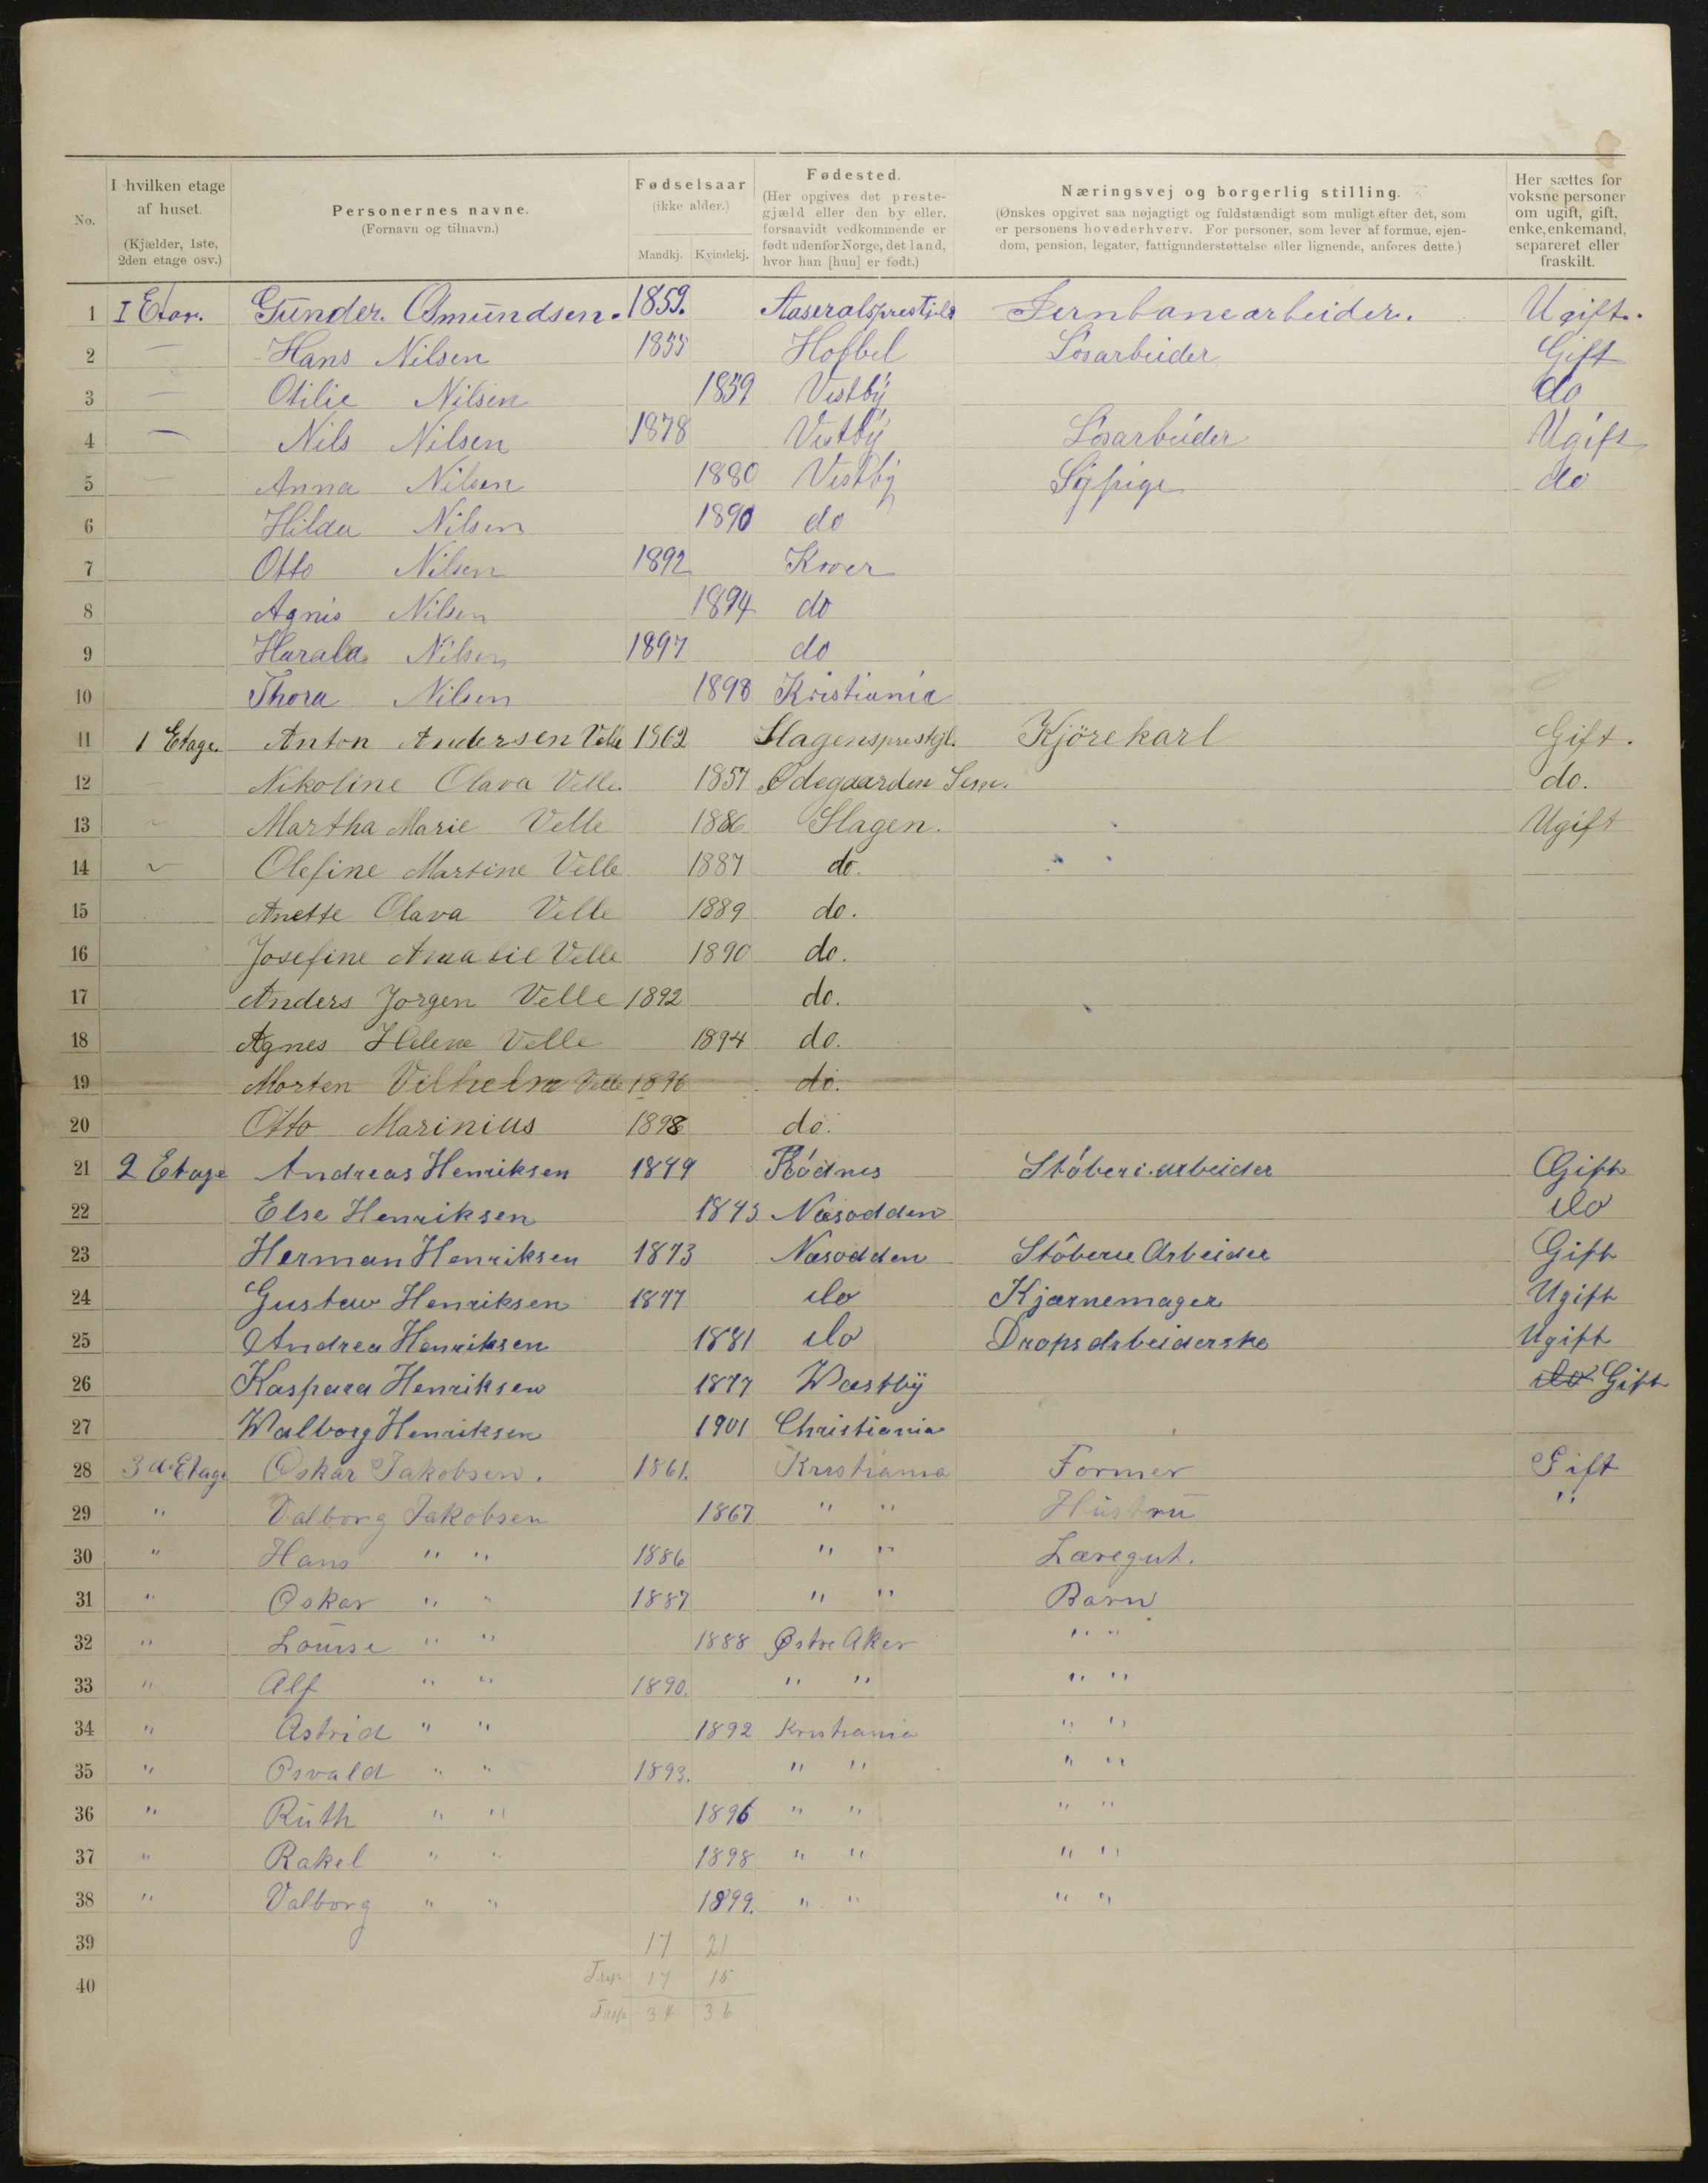 No.
I hvilken etage af huset. (Kjælder, 1ste, 2den etage osv.)
Personernes navne. (Fornavn og tilnavn.)
Fødselsaar (ikke alder.) Mandkj. Kvindekj.
Fødested. (Her opgives det prestegjæld eller den by eller, forsaavidt vedkommende er født udenfor Norge, det land, hvor han [hun] er født.)
Næringsvej og borgerlig stilling. (Ønskes opgivet saa nøjagtigt og fuldstændigt som muligt efter det, som er personens hovederhverv. For personer, som lever af formue, ejendom, pension, legater, fattigunderstøttelse eller lignende, anføres dette.)
Her sættes for voksne personer om ugift, gift, enke, enkemand, separeret eller fraskilt.
1 I Etag. Gunder. Osmundsen. 1859. Aaseralsprestjeld Jernbanearbeider. Ugift.
2 — Hans Nilsen 1855 Hobbel Lösarbeider Gift
3 — Otilie Nilsen 1859 Vestby do
4 — Nils Nilsen 1878 Vestby Lösarbeider Ugift
5 — Anna Nilsen 1880 Vestby Sypige do
6 Hilda Nilsen 1890 do
7 Otto Nilsen 1892 Kroer
8 Agnis Nilsen 1894 do
9 Harald Nilsen 1897 do
10 Thora Nilsen 1898 Kristiania
11 1 Etage. Anton Andersen Velle 1862 Slagensprestejl. Kjörekarl Gift.
12 Nikoline Olava Velle 1857 Ødegaarden Sem. do.
13 Martha Marie Velle 1886 Slagen. Ugift
14 Olefine Martine Velle 1887 do.
15 Anette Olava Velle 1889 do.
16 Josefine Amalie Velle 1890 do.
17 Anders Jorgen Velle 1892 do.
18 Agnes Helene Velle 1894 do.
19 Morten Vilhelm Velle 1896 do.
20 Otto Marinius 1898 do.
21 2 Etage Andreas Henriksen 1849 Rödnes Stöberi arbeider Gift
22 Else Henriksen 1843 Næsodden do
23 Herman Henriksen 1873 Næsodden Stöberie Arbeider Gift
24 Gustav Henriksen 1877 do Kjærnemager Ugift
25 Andrea Henriksen 1881 do Drops arbeiderske Ugift
26 Kaspara Henriksen 1877 Wæstby do Gift
27 Walborg Henriksen 1901 Christiania
28 3d Etage Oskar Jakobsen. 1861. Kristiania Former Gift
29 " Valborg Jakobsen 1867 " " Hustru "
30 " Hans " " 1886 " " Læregut.
31 " Oskar " " 1887 " " Barn
32 " Louise " " 1888 Østre Aker " "
33 " Alf " " 1890. " " " "
34 " Astrid " " 1892 Kristiania " "
35 " Osvald " " 1893. " " " "
36 " Ruth " " 1896 " " " "
37 " Rakel " " 1898 " " " "
38 " Valborg " " 1899. " " " "
39 17 21
40 Trsp 17 15
Trsp 34 36